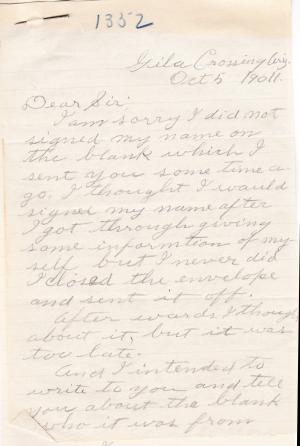 1352
Gila Crossing Ariz.
Oct 5 1911.
Dear Sir:
I am sorry I did not
signed my name on
the blank which I
sent you some time a-
go. I thought I would
signed my name after
I got through giving
some informtion of my
self but I never did
I closed the envelope
and sent it off.
After wards I though
about it, but it was
too late.
And I intended to
write to you and tell
you about the blank
who it was from